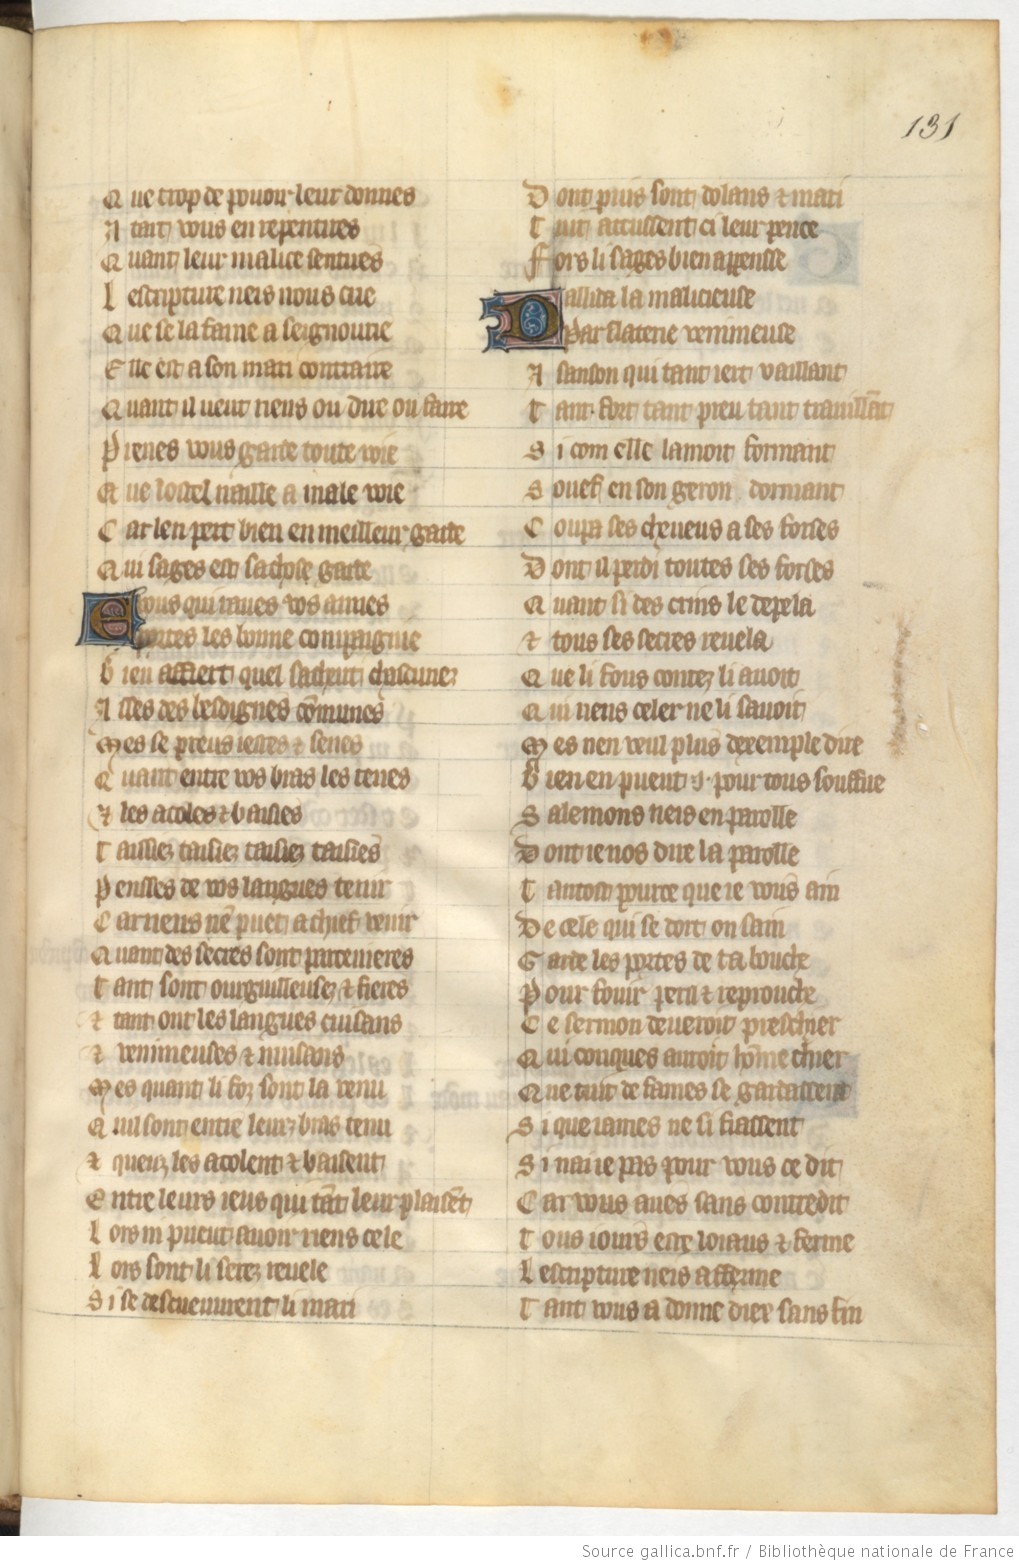 131
Que trop de pouoir leur donnes
A tart vous en repentires
Quant leur malice sentires
L escripture neis nous crie
Que se la fame a seignourie
Elle est a son mari contraire
Quant il ueut riens ou dire ou faire
Prenes vous garde toute voie
Que lostel naille a male voie
Car len pert bien en meilleur garde
Qui sages est sa chose garde
E vous qui raues vos amies
Portes les bonne compaignie
Bien affiert quel sachent chascunez
Asses des besoignes cōmunes
Mes se preus iestes & senes
Quant entre vos bras les tenes
& les acoles & baisies
Taisiez taisiez taisiez taisies
Pensses de vos langues tenir
Car riens nē puet a chief venir
Quant des secres sont parconieres
Tant sont ourguilleusez & fieres
& tant ont les langues cuisans
& venimeuses & nuisans
Mes quant li foz sont la venu
Quil sont entre leurz bras tenu
& quelz les acolent & baisent
Entre leurs ieus qui tāt leur plaisēt
Lors ni puet auoir riens cele
Lors sont li secrez reuele
Si se descueuurent li mari
Dont puis sont dolans & mari
Tuit accussent ci leur pence
Fors li sages bien apensse
Dallida la malicieuse
Par flaterie venimeuse
A sanson qui tant iert vaillant
Tant fort tant preu tant trauillāt
Si com elle lamoit formant
Souef en son geron dormant
Coupa ses cheueus a ses forses
Dont il perdi toutes ses forses
Quant si des crins le depela
& tous ses secres reuela
Que li fous contez li auoit
Qui riens celer ne li sauoit
Mes nen veul plus dexemple dire
Bien en puent .j. pour tous souffire
Salemons neis en parolle
Dont ie uos dire la parolle
Tantost pource que ie vous ain
De cele qui se dort on sain
Garde les portes de ta bouche
Pour fouir peril & reprouche
Ce sermon deueroit preschier
Qui conques auroit hōme chier
Que tuit de fames se gardassent
Si que iames ne si fiassent
Si nai ie pas pour vous ce dit
Car vous aues sans contredit
Tous iours este loiaus & ferme
L escripture neis afferme
Tant vous a donne diex sans fin
Source gallica.bnf.fr / Bibliothèque nationale de France